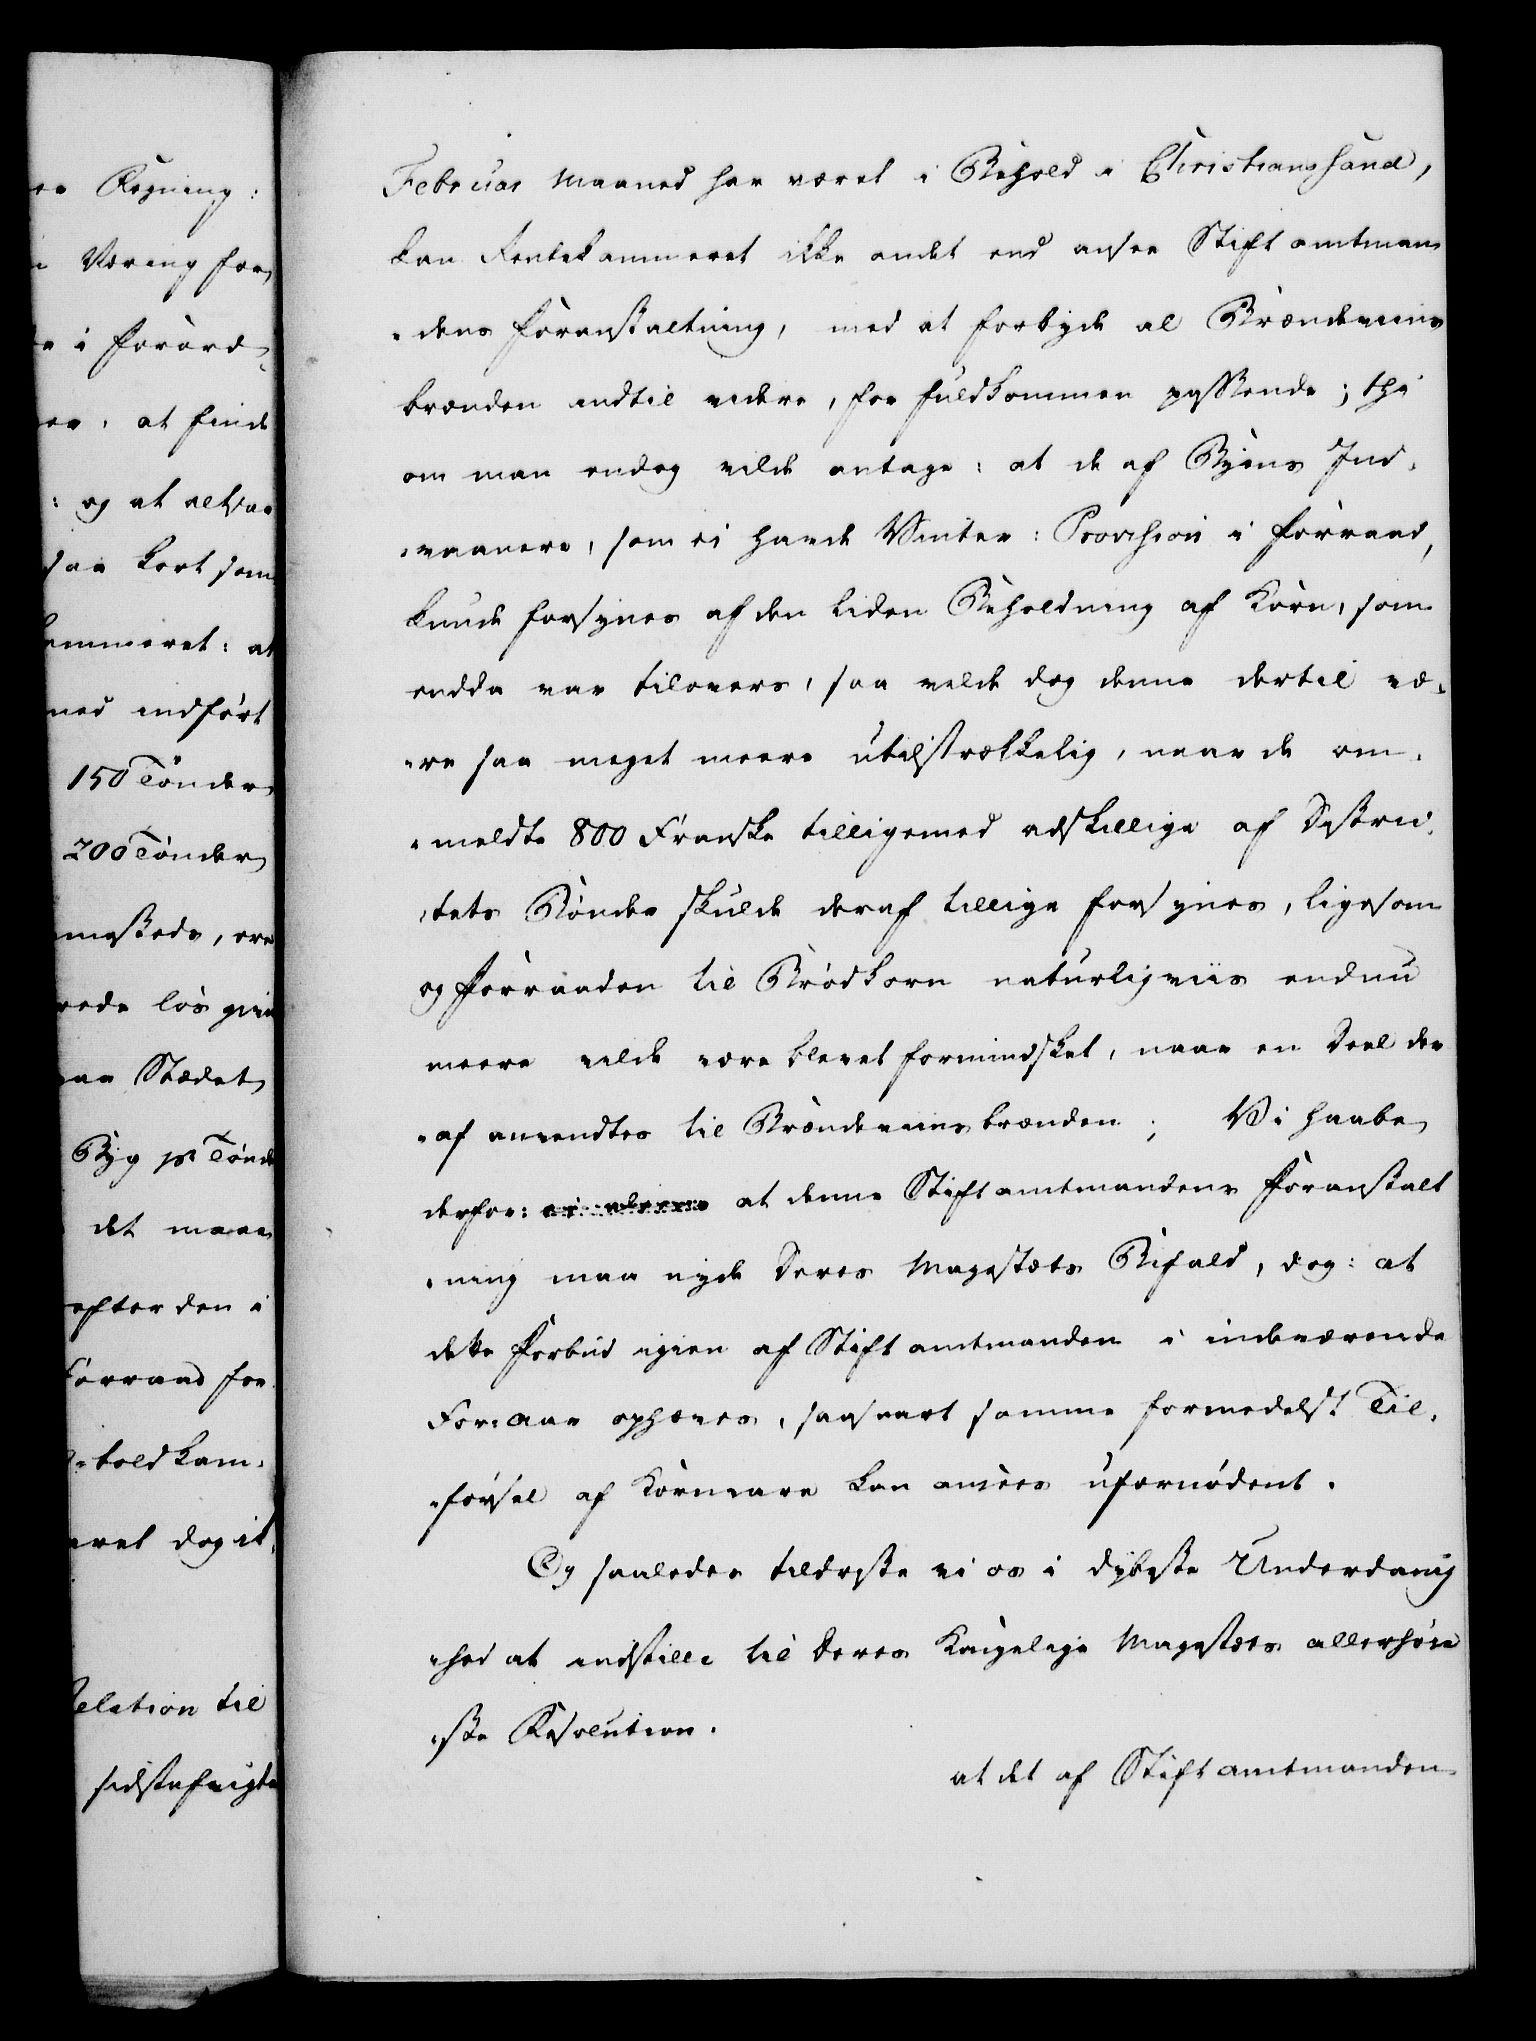 Regning:
Næring for
i Forord
at finde
: og at altsaa
saa kort som
kammeret: at
ned indført
150 Tønder
200 Tønder
ere
Stædet
Byg pr Tønde
det maae
efter den i
Forraad for
toldkam-
dog it
Relation til
Februar Maaned har været i Behold i Christiansand,
kan Rentekammeret ikke andet end ansee Stiftamtman
-dens Foranstaltning, med at forbyde al Brændeviins
brænden indtil videre, for fuldkommen passende; thi
om man endog vilde antage: at de af Byens Ind-
-vaanere, som ei havde Vinter: Provision i Forraad,
kunde forsynes af den liden Beholdning af Korn, som
endda var tilovers, saa vilde dog denne dertil væ-
-re saa meget meere utilstrækkelig, naar de om-
-meldte 800 Franske tilligemed adskillige af Distric-
-tets Bønder skulde deraf tillige forsynes, ligesom
og Forraaden til Brødkorn naturligviis endnu
meere vilde være blevet formindsket, naar en Deel der
-af anvendtes til Brændeviinsbrænden; Vi haabe
derfor: at denne Stiftamtmandens Foranstalt
-ning maa nyde Deres Magestæts Bifald, dog: at
dette Forbud igien af Stiftamtmanden i indeværende
For:aar ophæves, saasnart samme formedelst Til-
-førsel af Kornvare kan ansees ufornødent.
Og saaledes tildriste vi os i dybeste Underdanig
-hed at indstille til Deres Kongelige Magestæts allerhøie
-ste Resolution.
at det af Stiftamtmanden